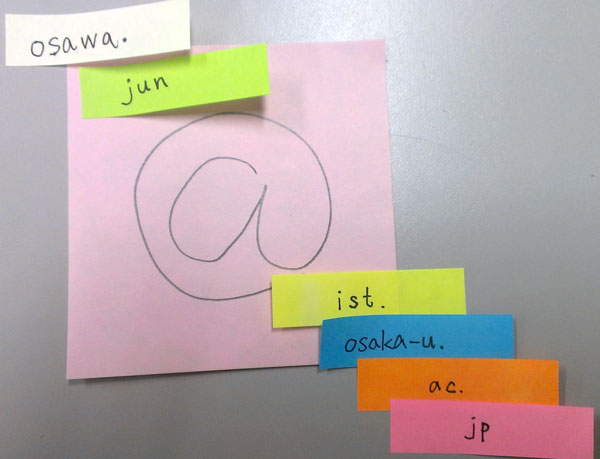 osawa.
jun
@
ist.
osaka-u.
ac.
jp